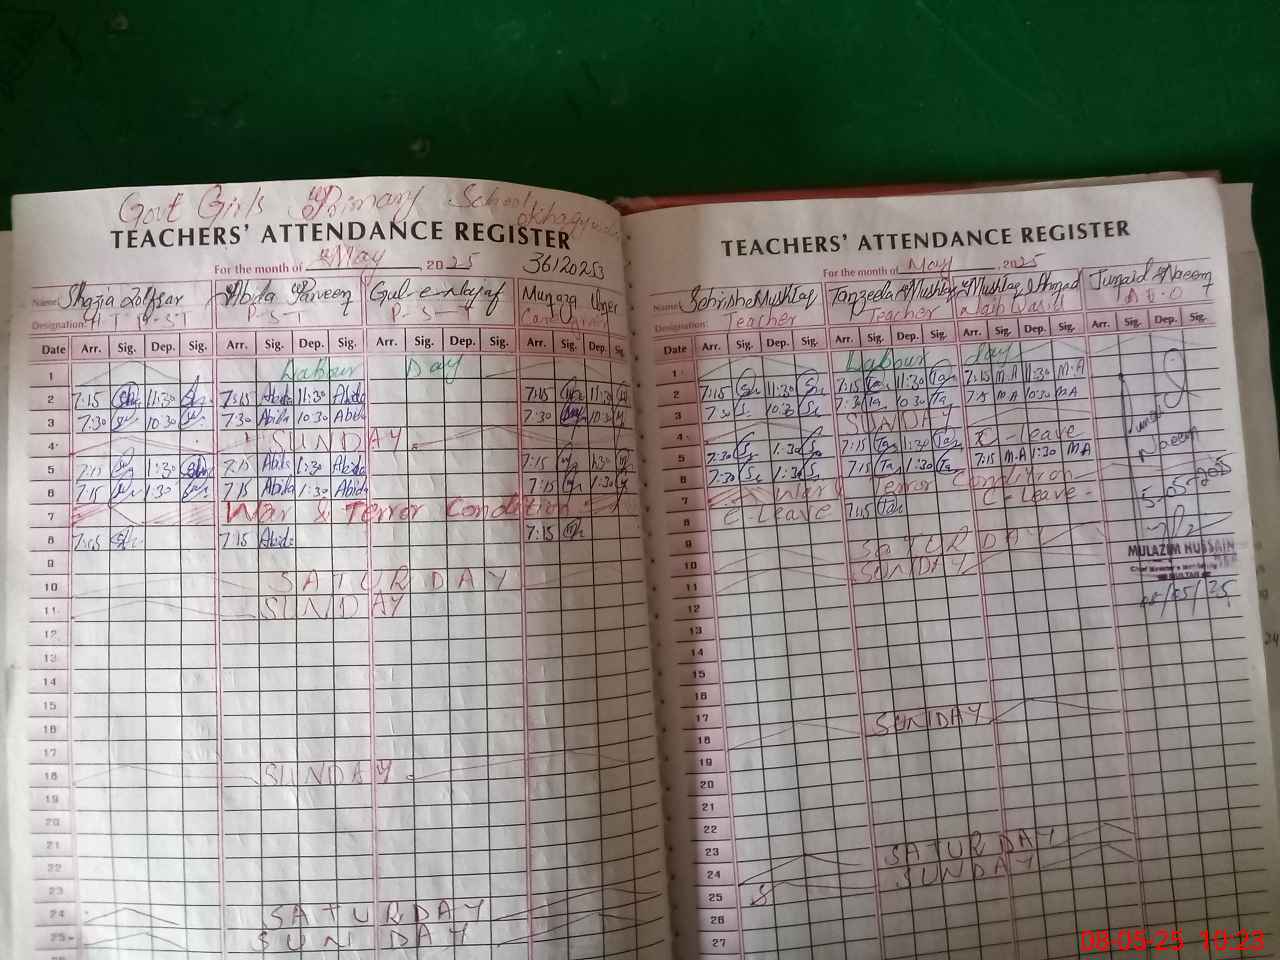 Govt Girls Primary School
TEACHERS' ATTENDANCE REGISTER
For the month of May 2025 36120253
Name: Shazia Zolfqar Abida Parveen Gul-e-Nayaf Munaza Umer
Designation: H.T P.S.T P-S-T P-S-T
Date Arr. Sig. Dep. Sig. Arr. Sig. Dep. Sig. Arr. Sig. Dep. Sig. Arr. Sig. Dep. Sig.
1 Labour Day
2 7:15 11:30 7:15 Abida 11:30 Abida 7:15 11:30
3 7:30 10:30 7:30 Abida 10:30 Abida 7:30 10:30
4 SUNDAY
5 7:15 1:30 7:15 Abida 1:30 Abida 7:15 1:30
6 7:15 1:30 7:15 Abida 1:30 Abida 7:15 1:30
7 War & Terror Condition
8 7:15 7:15 Abida 7:15
9
10 SATURDAY
11 SUNDAY
12
13
14
15
16
17
18 SUNDAY
19
20
21
22
23
24 SATURDAY
25 SUNDAY
TEACHERS' ATTENDANCE REGISTER
For the month of May 2025
Name: Sehrishe Mushtaq Tanzeela Mushtaq Mushtaq Ahmad Junaid Naeem
Designation: Teacher Teacher A.E.O
Date Arr. Sig. Dep. Sig. Arr. Sig. Dep. Sig. Arr. Sig. Dep. Sig. Arr. Sig. Dep. Sig.
1 Labour Day
2 7:15 11:30 7:15 11:30 7:15 M.A 11:30 M.A
3 7:30 10:30 7:30 10:30 7:15 M.A 10:30 M.A
4 SUNDAY
5 7:30 1:30 7:15 1:30 C-leave
6 7:30 1:30 7:15 1:30 7:15 M.A 1:30 M.A
7 War & Terror Condition
8 C-leave 7:15 C-leave
Junaid
Naeem
5-05-2025
9
10 SATURDAY
11 SUNDAY
MULAZIM HUSSAIN
12
08/05/25
13
14
15
16
17
18 SUNDAY
19
20
21
22
23
24 SATURDAY
25 SUNDAY
26
27
08-05-25 10:23